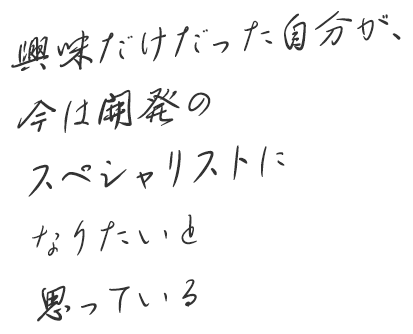 興味だけだった自分が、
今は開発の
スペシャリストに
なりたいと
思っている